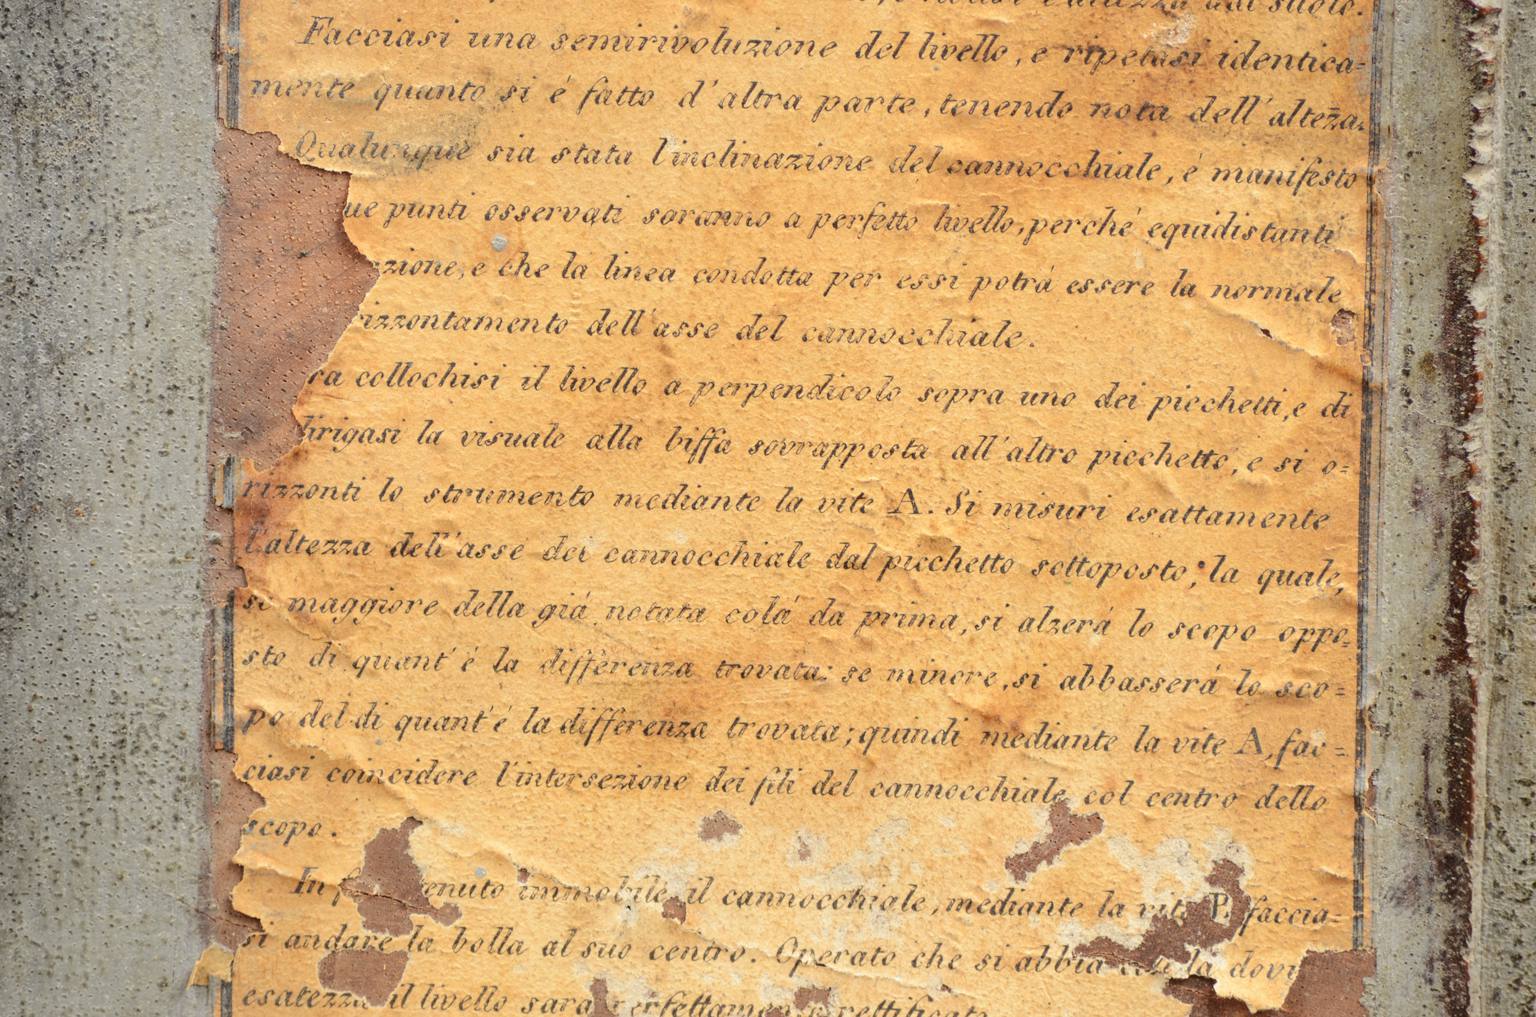 l'altezza dal suolo.
Facciasi una semirivoluzione del livello, e ripetasi identica=
mente quanto si é fatto d'altra parte, tenendo nota dell'altezza.
Qualunque sia stata l'inclinazione del cannocchiale, é manifesto
ue punti osservati saranno a perfetto livello, perché equidistanti
zione, e che la linea condotta per essi potrá essere la normale
rizzontamento dell'asse del cannocchiale.
ra collochisi il livello a perpendicolo sopra uno dei picchetti, e di
dirigasi la visuale alla biffa sovrapposta all'altro picchetto, e si o=
rizzonti lo strumento mediante la vite A. Si misuri esattamente
l'altezza dell'asse del cannocchiale dal picchetto sottoposto; la quale,
se maggiore della giá notata colá da prima, si alzerá lo scopo oppo=
sto di quant'é la differenza trovata: se minore, si abbasserá lo sco=
po del di quant'é la differenza trovata; quindi mediante la vite A, fac=
ciasi coincidere l'intersezione dei fili del cannocchiale col centro dello
scopo.
In enuto immobile il cannocchiale, mediante la vite P. faccia=
si andare la bolla al suo centro. Operato che si abbia con la dov
esatezza il livello sará perfettamente rettificato